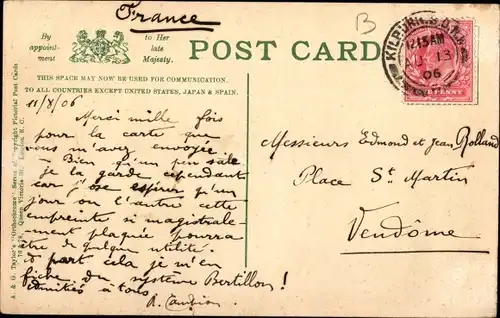 France
B
By
appoint-
ment
to Her
late
Majesty.
POST CARD
THIS SPACE MAY NOW BE USED FOR COMMUNICATION.
TO ALL COUNTRIES EXCEPT UNITED STATES, JAPAN & SPAIN.
KILBURN.S.O.
12.15AM
AU 13
06
PENNY
11/8/06
Merci mille fois
pour la carte que
vous m'avez envoyée
- Bien qu'un peu sale
je la garde cependant
car j'ose espérer qu'un
jour ou l'autre cette
empreinte si magistrale-
ment plaquée pourra
être de quelque utilité.
à part cela je m'en
fiche du système Bertillon!
amitiés à tous
Messieurs Edmond et Jean Rolland
Place St. Martin
Vendôme
A. & G. Taylor's "Orthochrome" Series of Copyright Pictorial Post Cards
Queen Victoria St., London, E.C.